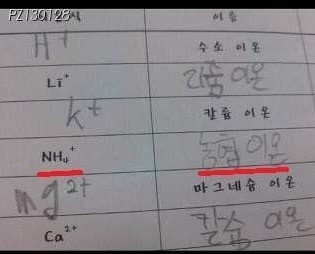 PZ130128
식 이름
H⁺ 수소 이온
Li⁺ 리튬 이온
k⁺ 칼륨 이온
NH₄⁺ 농협 이온
mg²⁺ 마그네슘 이온
Ca²⁺ 칼슘 이온